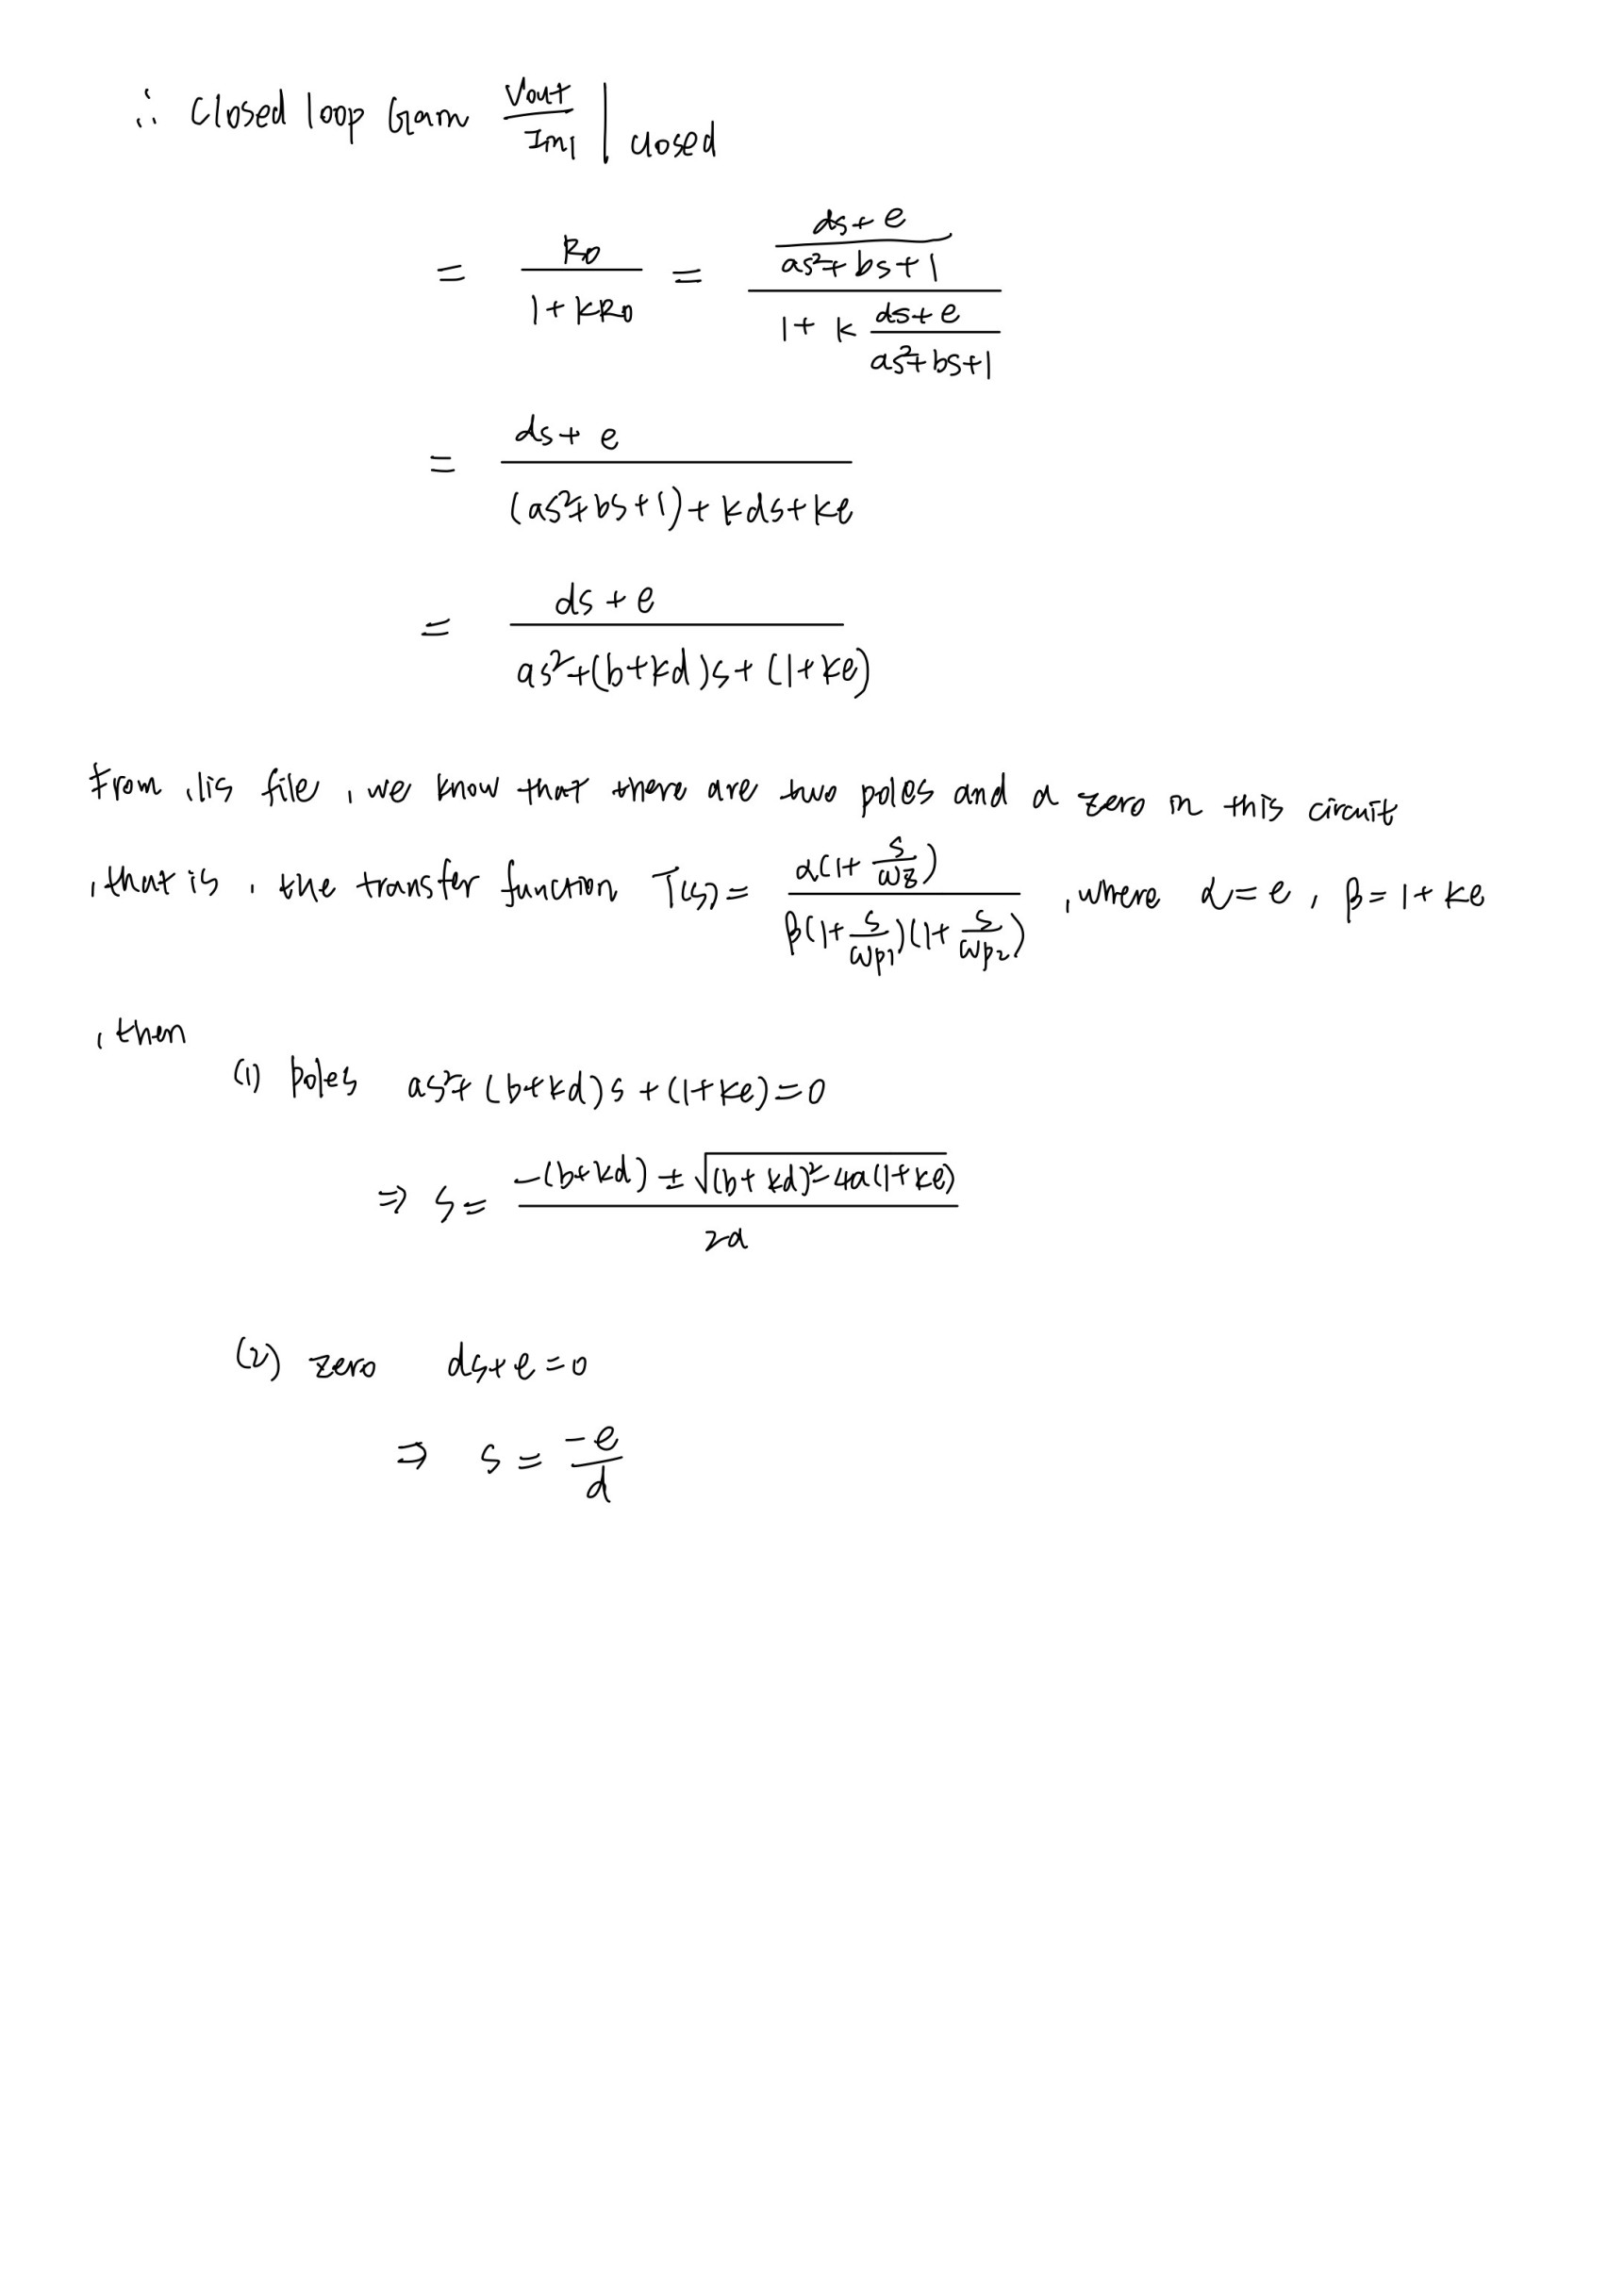 ∴ Closed loop Gain Vout/Iin1 | closed
= R0/(1+KR0) = ((ds+e)/(as²+bs+1))/(1+K(ds+e)/(as²+bs+1))
= (ds+e)/((as²+bs+1)+Kds+Ke)
= (ds+e)/(as²+(b+Kd)s+(1+Ke))
From .lis file, we know that there are two poles and a zero in this circuit
, that is, the transfer function T(s) = α(1+s/ωz)/(β(1+s/ωp1)(1+s/ωp2)) , where α=e, β=1+Ke
, then
(1) poles as²+(b+Kd)s+(1+Ke)=0
⇒ s = (-(b+Kd)±√((b+Kd)²-4a(1+Ke)))/2a
(2) zero ds+e=0
⇒ s = -e/d